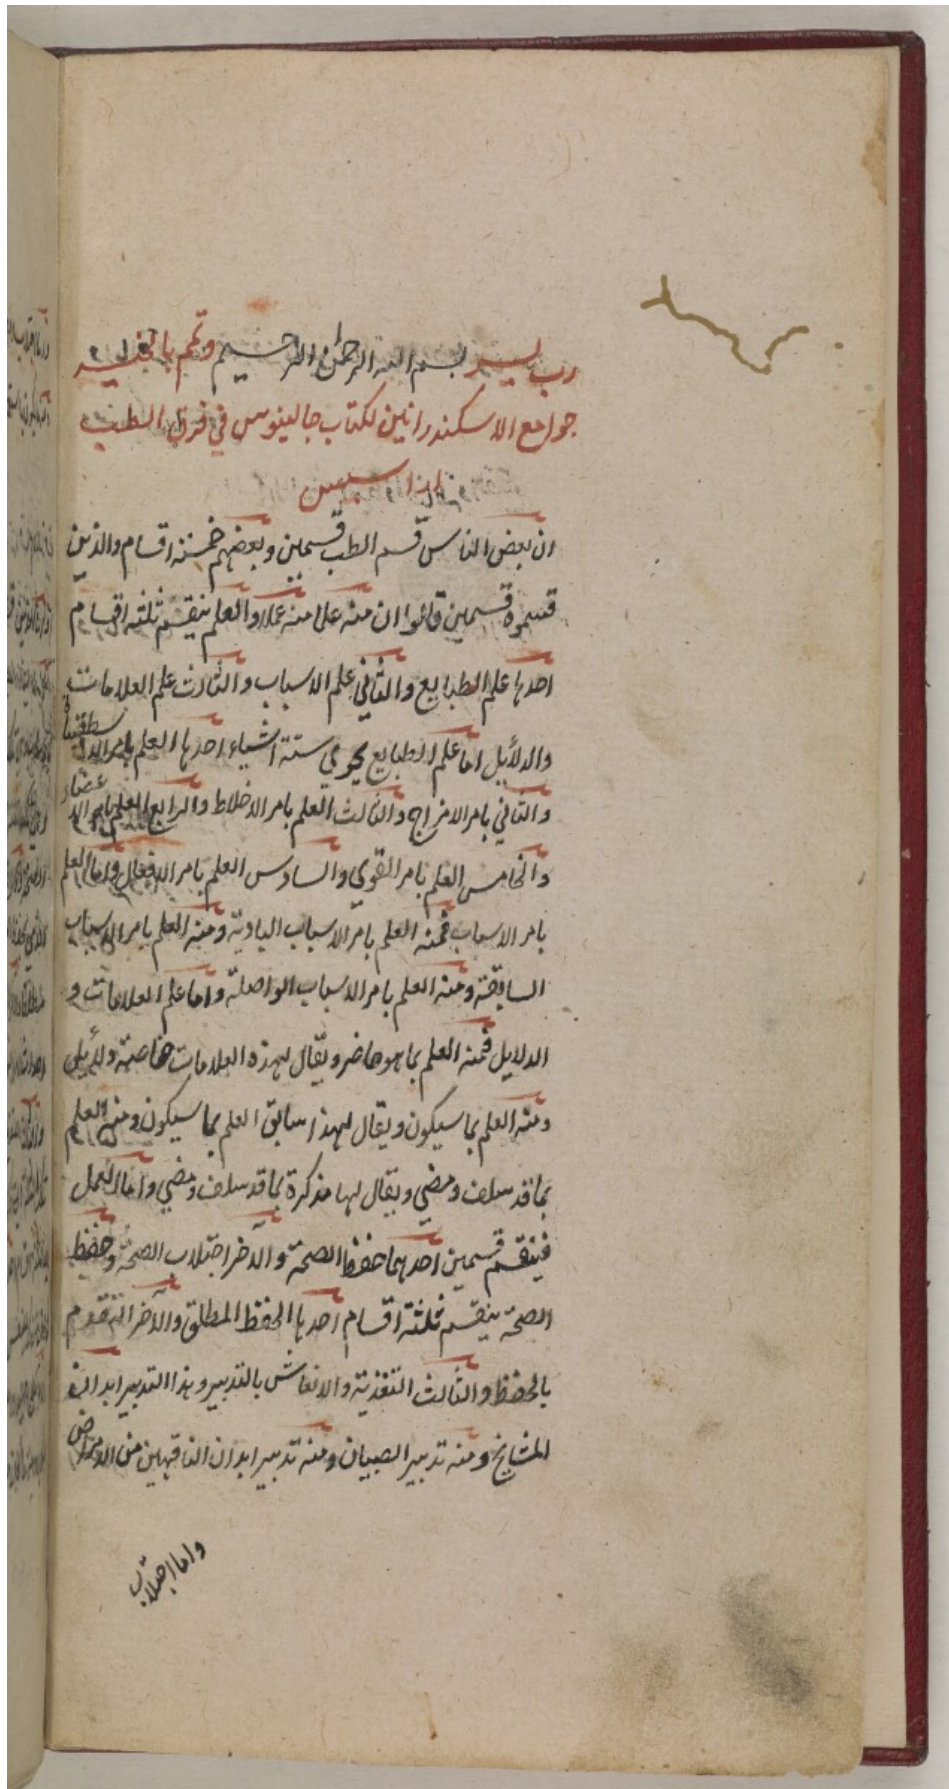 رب يسر بسم الله الرحمن الرحيم وتمم بالخير
جوامع الاسكندرانيين لكتاب جالينوس في فرق الطب
ان بعض الناس قسم الطب قسمين وبعضهم خمسة اقسام والذين
قسموه قسمين قالوا ان منه علما منه عملا والعلم ينقسم ثلثة اقسام
احدها علم الطبايع والثاني علم الاسباب والثالث علم العلامات
والدلايل اما علم الطبايع يحوي ستة اشياء احدها العلم بامر الاسطقسات
والثاني بامر الامزاج والثالث العلم بامر الاخلاط والرابع العلم بامر الاعضاء
والخامس العلم بامر القوي والسادس العلم بامر الافعال واما العلم
بامر الاسباب فمنه العلم بامر الاسباب البادية ومنه العلم بامر الاسباب
السابقة ومنه العلم بامر الاسباب الواصلة واما علم العلامات و
الدلايل فمنه العلم بما هو حاضر ويقال لهذه العلامات خاصة دلايل
ومنه العلم بما سيكون ويقال لهذا سابق العلم بما سيكون ومنه العلم
بما قد سلف ومضي ويقال لها مذكرة بما قد سلف ومضي واما العمل
فينقسم قسمين احدهما حفظ الصحة والآخر اجتلاب الصحة وحفظ
الصحة ينقسم ثلثة اقسام احدها الحفظ المطلق والآخر التقدم
بالحفظ والثالث التغذية والانعاش بالتدبير وهذا التدبير ابدان
المشايخ ومنه تدبير الصبيان ومنه تدبير ابدان الناقهين من الامراض
واما اجتلاب